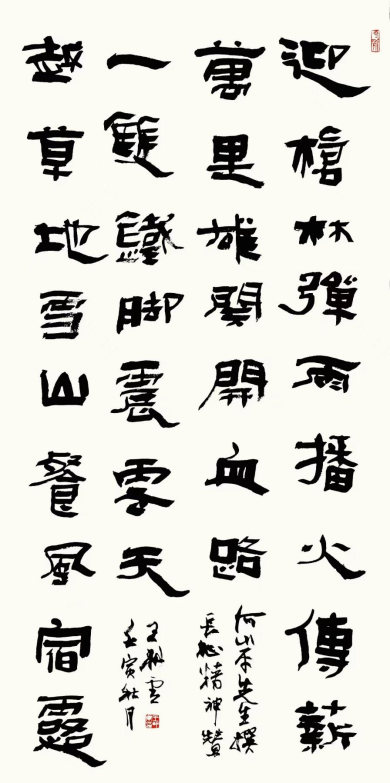 迎槍林彈雨播火傳薪
萬里雄關開血路
何山平先生撰
長征精神贊
越草地雪山餐風宿露
一雙鐵脚震雲天
壬寅秋月